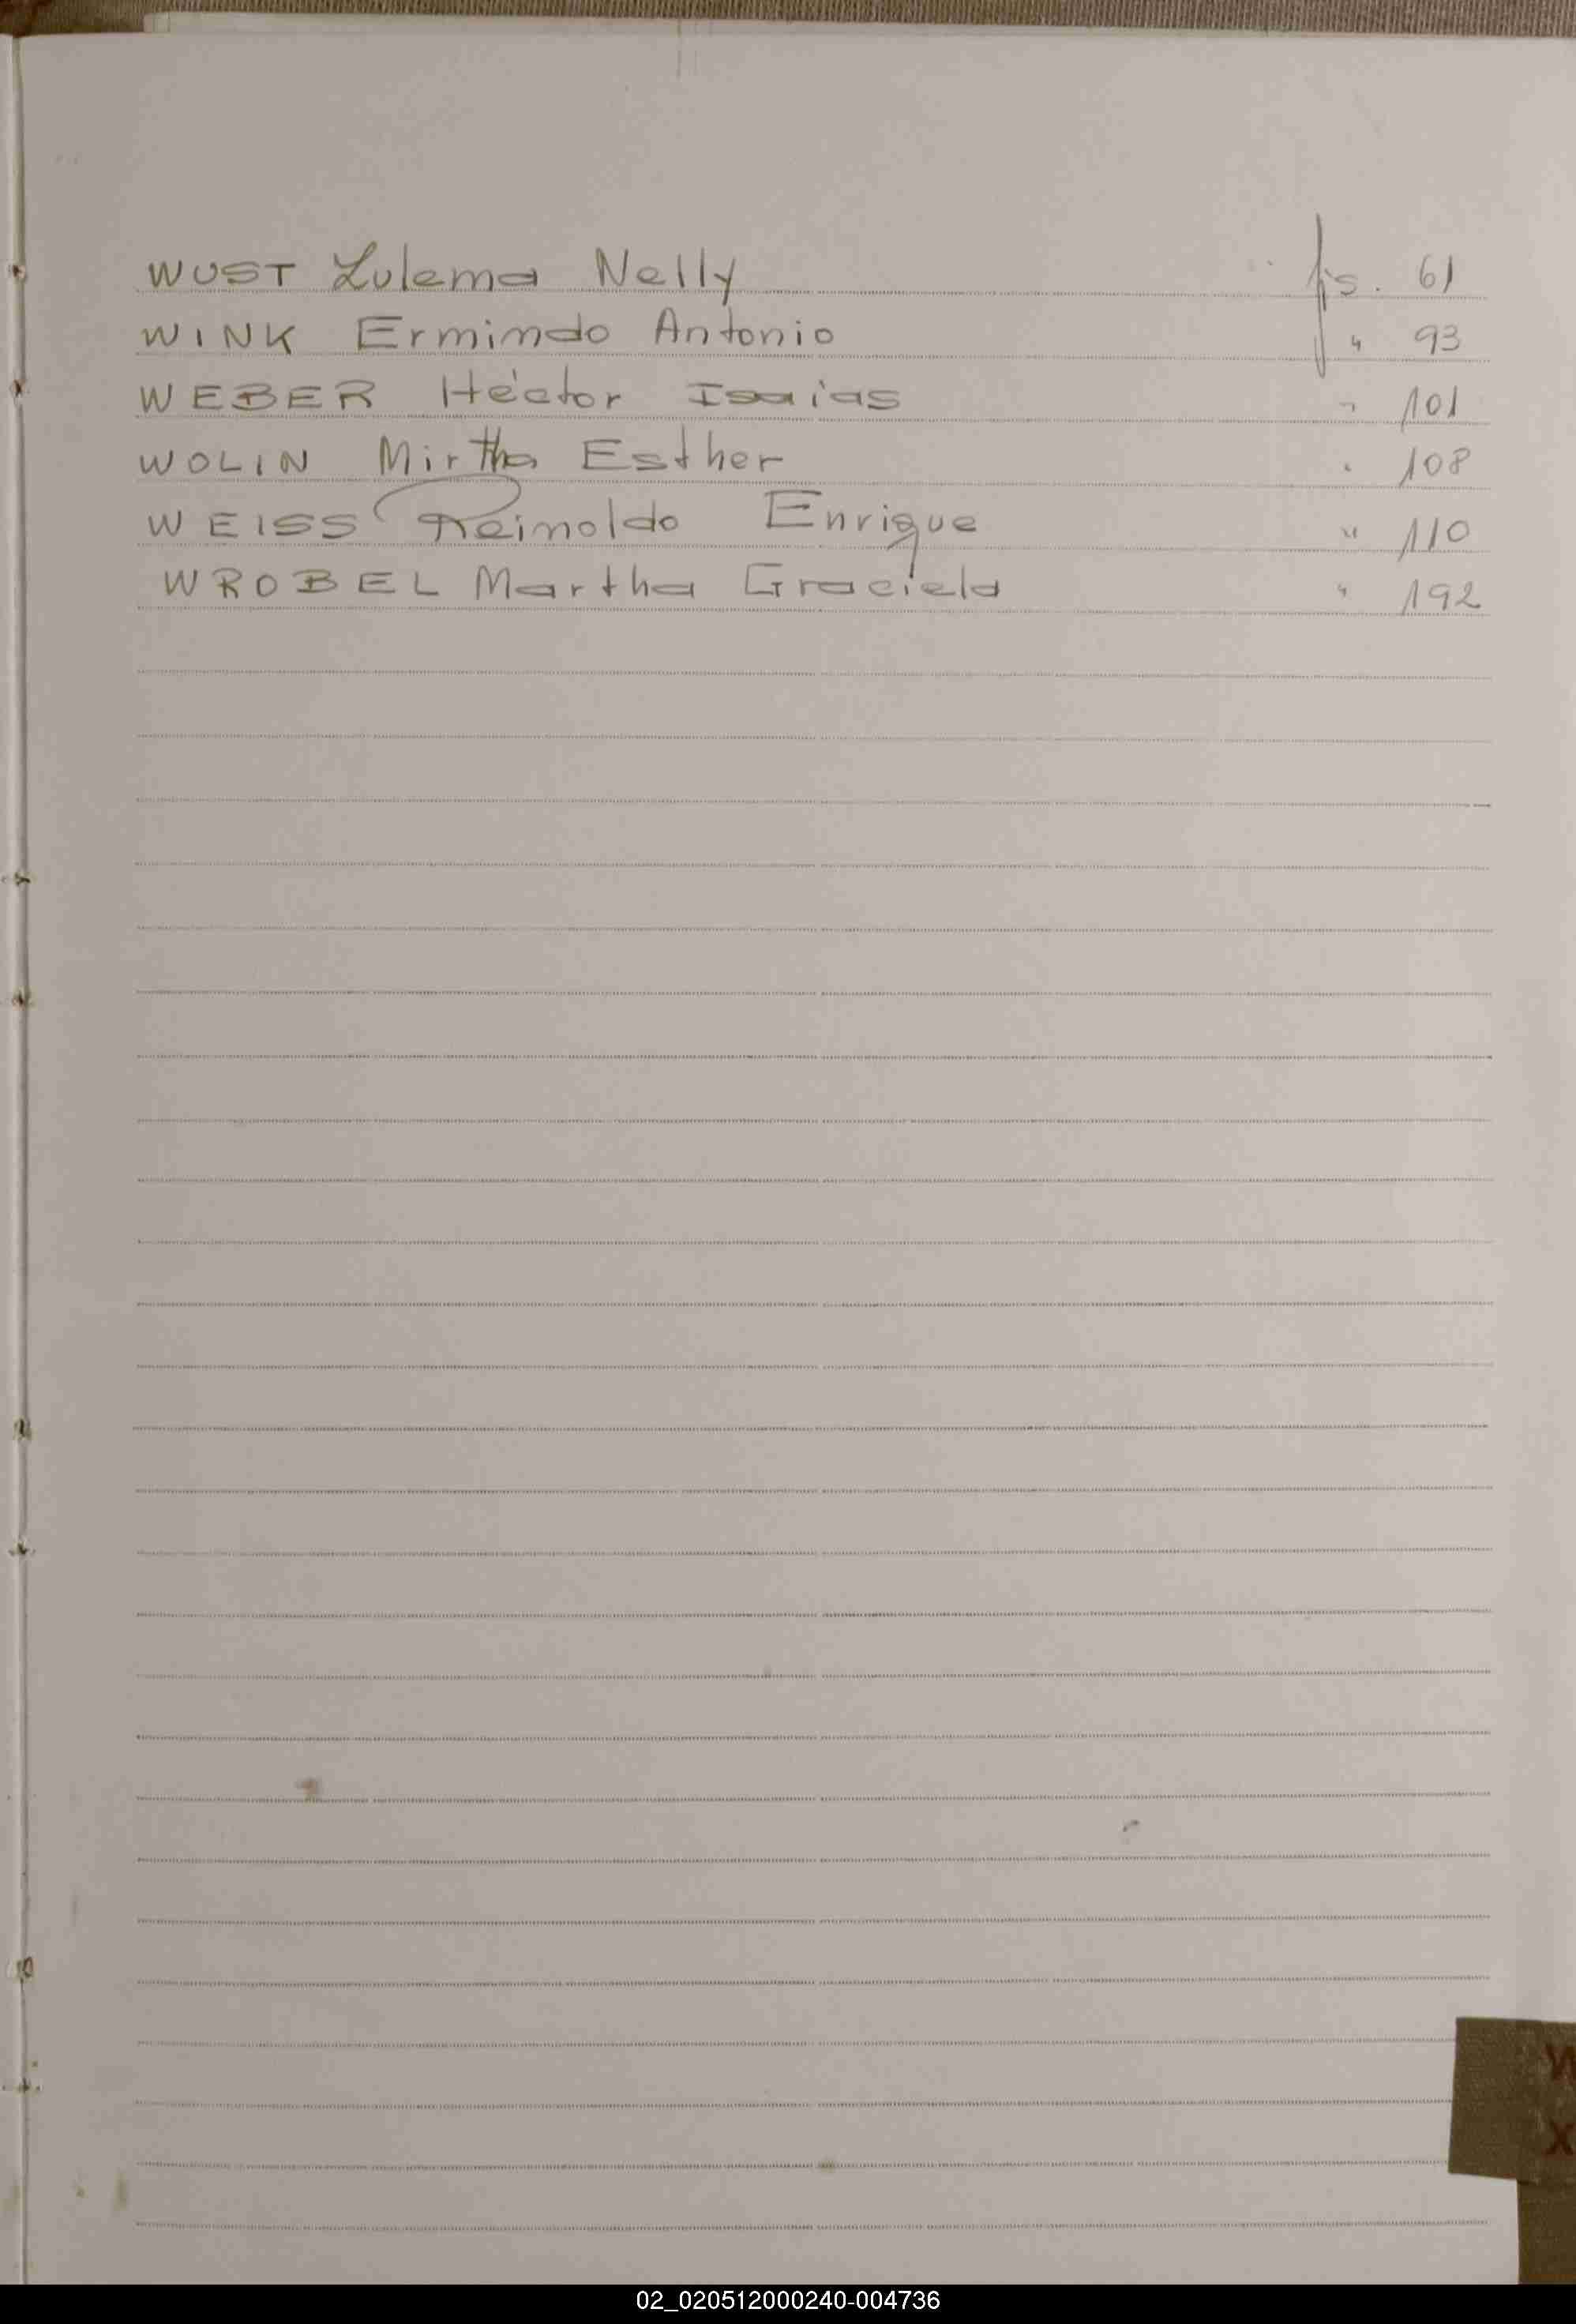 WUST Zulema Nelly fjs. 61
WINK Ermindo Antonio " 93
WEBER Héctor Isaias " 101
WOLIN Mirtha Esther " 108
WEISS Reinoldo Enrique " 110
WROBEL Martha Graciela " 192
W
X
02_020512000240-004736